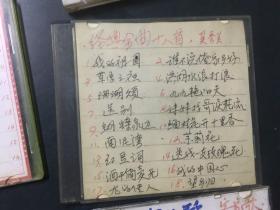 经典金曲十八首
1. 我的祖国 2. 谁不说俺家乡好
3. 草原之夜 4. 洪湖水浪打浪
5. 珊瑚颂 6. 九九艳阳天
7. 送别 8. 妹妹找哥泪花流
9. 蝴蝶泉边 10. 缅桂花开十里香
11. 南泥湾 12. 茉莉花
13. 红豆词 14. 送我一支玫瑰花
15. 酒干倘卖无 16. 我的中国心
17. 龙的传人 18. 望乡